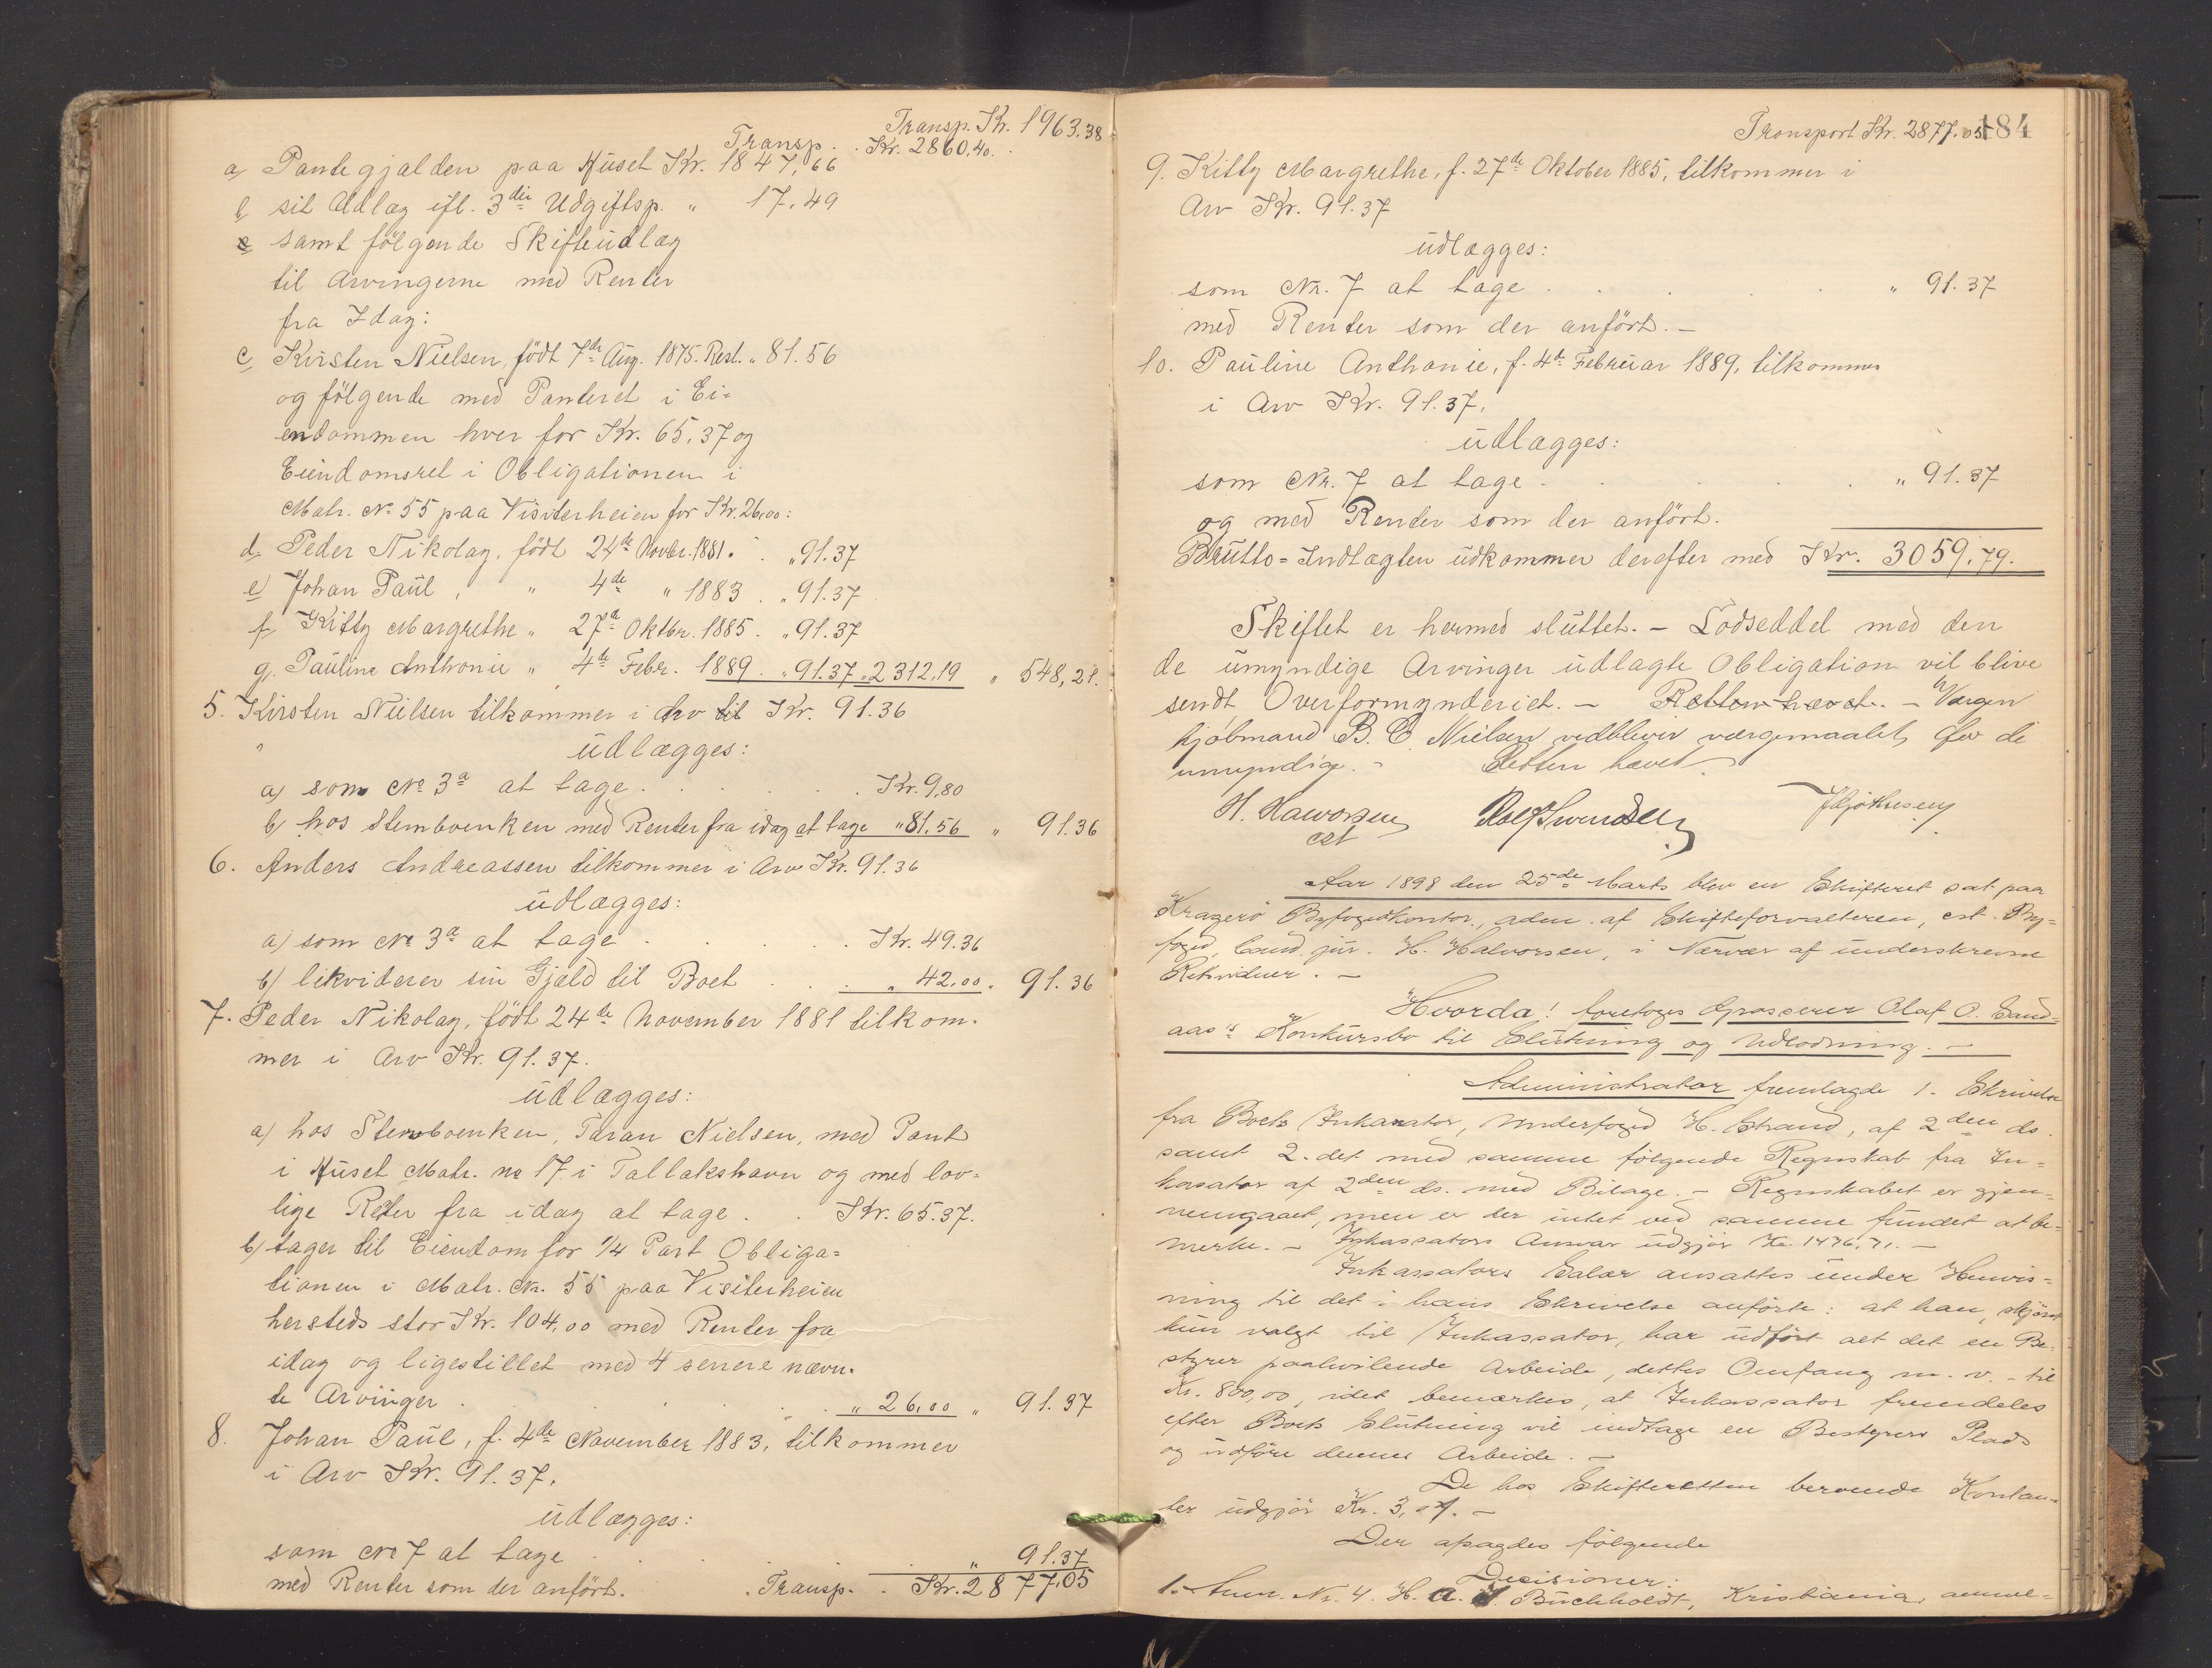 Transp. Kr. 1963.38
Transp. . Kr. 2860,40.
a, Pantegjælden paa Huset Kr. 1847,66
b, sit Udlæg ifl. 3die Udgiftsp. " 17,49
samt følgende Skifteudlæg
til Arvingerne med Renter
fra Idag:
c, Kirsten Nielsen, født 7de Aug. 1875. Rest. " 81.56
og følgende med Panteret i Ei-
endommen hver for Kr. 65,37 og
Eiendomsret i Obligationen i
Matr. No 55 paa Visiterheien for Kr. 26,00:
d, Peder Nikolay, født 24de Novbr. 1881. . " 91.37
e) Johan Paul, " 4de " 1883 . " 91.37
f, Kitty Margrethe " 27de Oktbr. 1885. " 91.37
g, Pauline Anthonie " 4de Febr. 1889. " 91.37 " 2312,19 " 548,21.
5. Kirsten Nielsen tilkommer i Arv Kr. 91.36
udlægges:
a) som No 3a at tage . . . . Kr. 9,80
b) hos Stervboenken med Renter fra idag at tage " 81,56 " 91.36
6. Anders Andreassen tilkommer i Arv Kr. 91.36
udlægges:
a) som No 3a at tage . . . . Kr. 49.36
b) likviderer sin Gjæld til Boet . . . " 42,00 " 91.36
7. Peder Nikolay, født 24de November 1881 tilkom-
mer i Arv Kr. 91.37.
udlægges:
a) hos Stervboenken, Taran Nielsen, med Pant
i Huset Matr. No 17 i Tallakshavn og med lov-
lige Reter fra idag at tage . . Kr. 65.37.
b) tager til Eiendom for 1/4 Part Obliga-
tionen i Matr. No. 55 paa Visiterheien
hersteds stor Kr. 104,00 med Renter fra
idag og ligestillet med 4 senere nævn-
te Arvinger . . . . " 26,00 " 91.37
8. Johan Paul, f. 4de November 1883, tilkommer
i Arv Kr. 91.37.
udlægges:
som No 7 at tage . . . . " 91.37
med Renter som der anført. . Transp. . Kr. 2877,05
Transport Kr. 2877.05
184
9. Kitty Margrethe, f. 27de Oktober 1885, tilkommer i
Arv Kr. 91.37
udlægges:
som No. 7 at tage . . . . " 91.37
med Renter som der anført. –
10. Pauline Anthonie, f. 4de Februar 1889, tilkommer
i Arv Kr. 91.37.
udlægges:
som No. 7 at tage . . . . " 91.37
og med Renter som der anført.
Brutto-Indtægten udkommer derefter med Kr. 3059,79.
Skiftet er hermed sluttet. – Lodseddel med den
de umyndige Arvinger udlagte Obligation vil blive
sendt Overformynderiet. – Retten hævet. – Værgen
kjøbmand B. C. Nielsen vedbliver værgemaalet for de
umyndige. – Retten hævet
H. Halvorsen
cst
Aar 1898 den 25de Marts blev en Skifteret sat paa
Kragerø Byfogedkontor, adm. af Skifteforvalteren, cst. By-
foged, Cand. jur. H. Halvorsen, i Nærvær af underskrevne
Retsvidner. –
Hvorda! foretoges Grosserer Olaf O. Sand-
aas's Konkursbo til Slutning og Udlodning. –
Administrator fremlagde 1. Skrivelse
fra Boets Inkassator, Underfoged H. Strand, af 2den ds.
samt 2. det med samme følgende Regnskab fra In-
kassator af 2den ds. med Bilage. – Regnskabet er gjen-
nemgaaet, men er der intet ved samme fundet at be-
merke. – Inkassators Ansvar udgjør Kr. 1476,71. –
Inkassators Salær ansattes under Henvis-
ning til det i hans Skrivelse anførte: at han, skjønt
kun valgt til Inkassator, har udført alt det en Be-
styrer paahvilende Arbeide, dettes Omfang m. v. – til
Kr. 800,00, idet bemærkes, at Inkassator fremdeles
efter Boets Slutning vil indtage en Bestyrers Plads
og udføre dennes Arbeide. –
De hos Skifteretten beroende Kontan-
ter udgjør Kr. 3,
Der afsagdes følgende
Decisioner:
1. Anm. No. 4. H. A. Buchholdt, Kristiania, anmel-